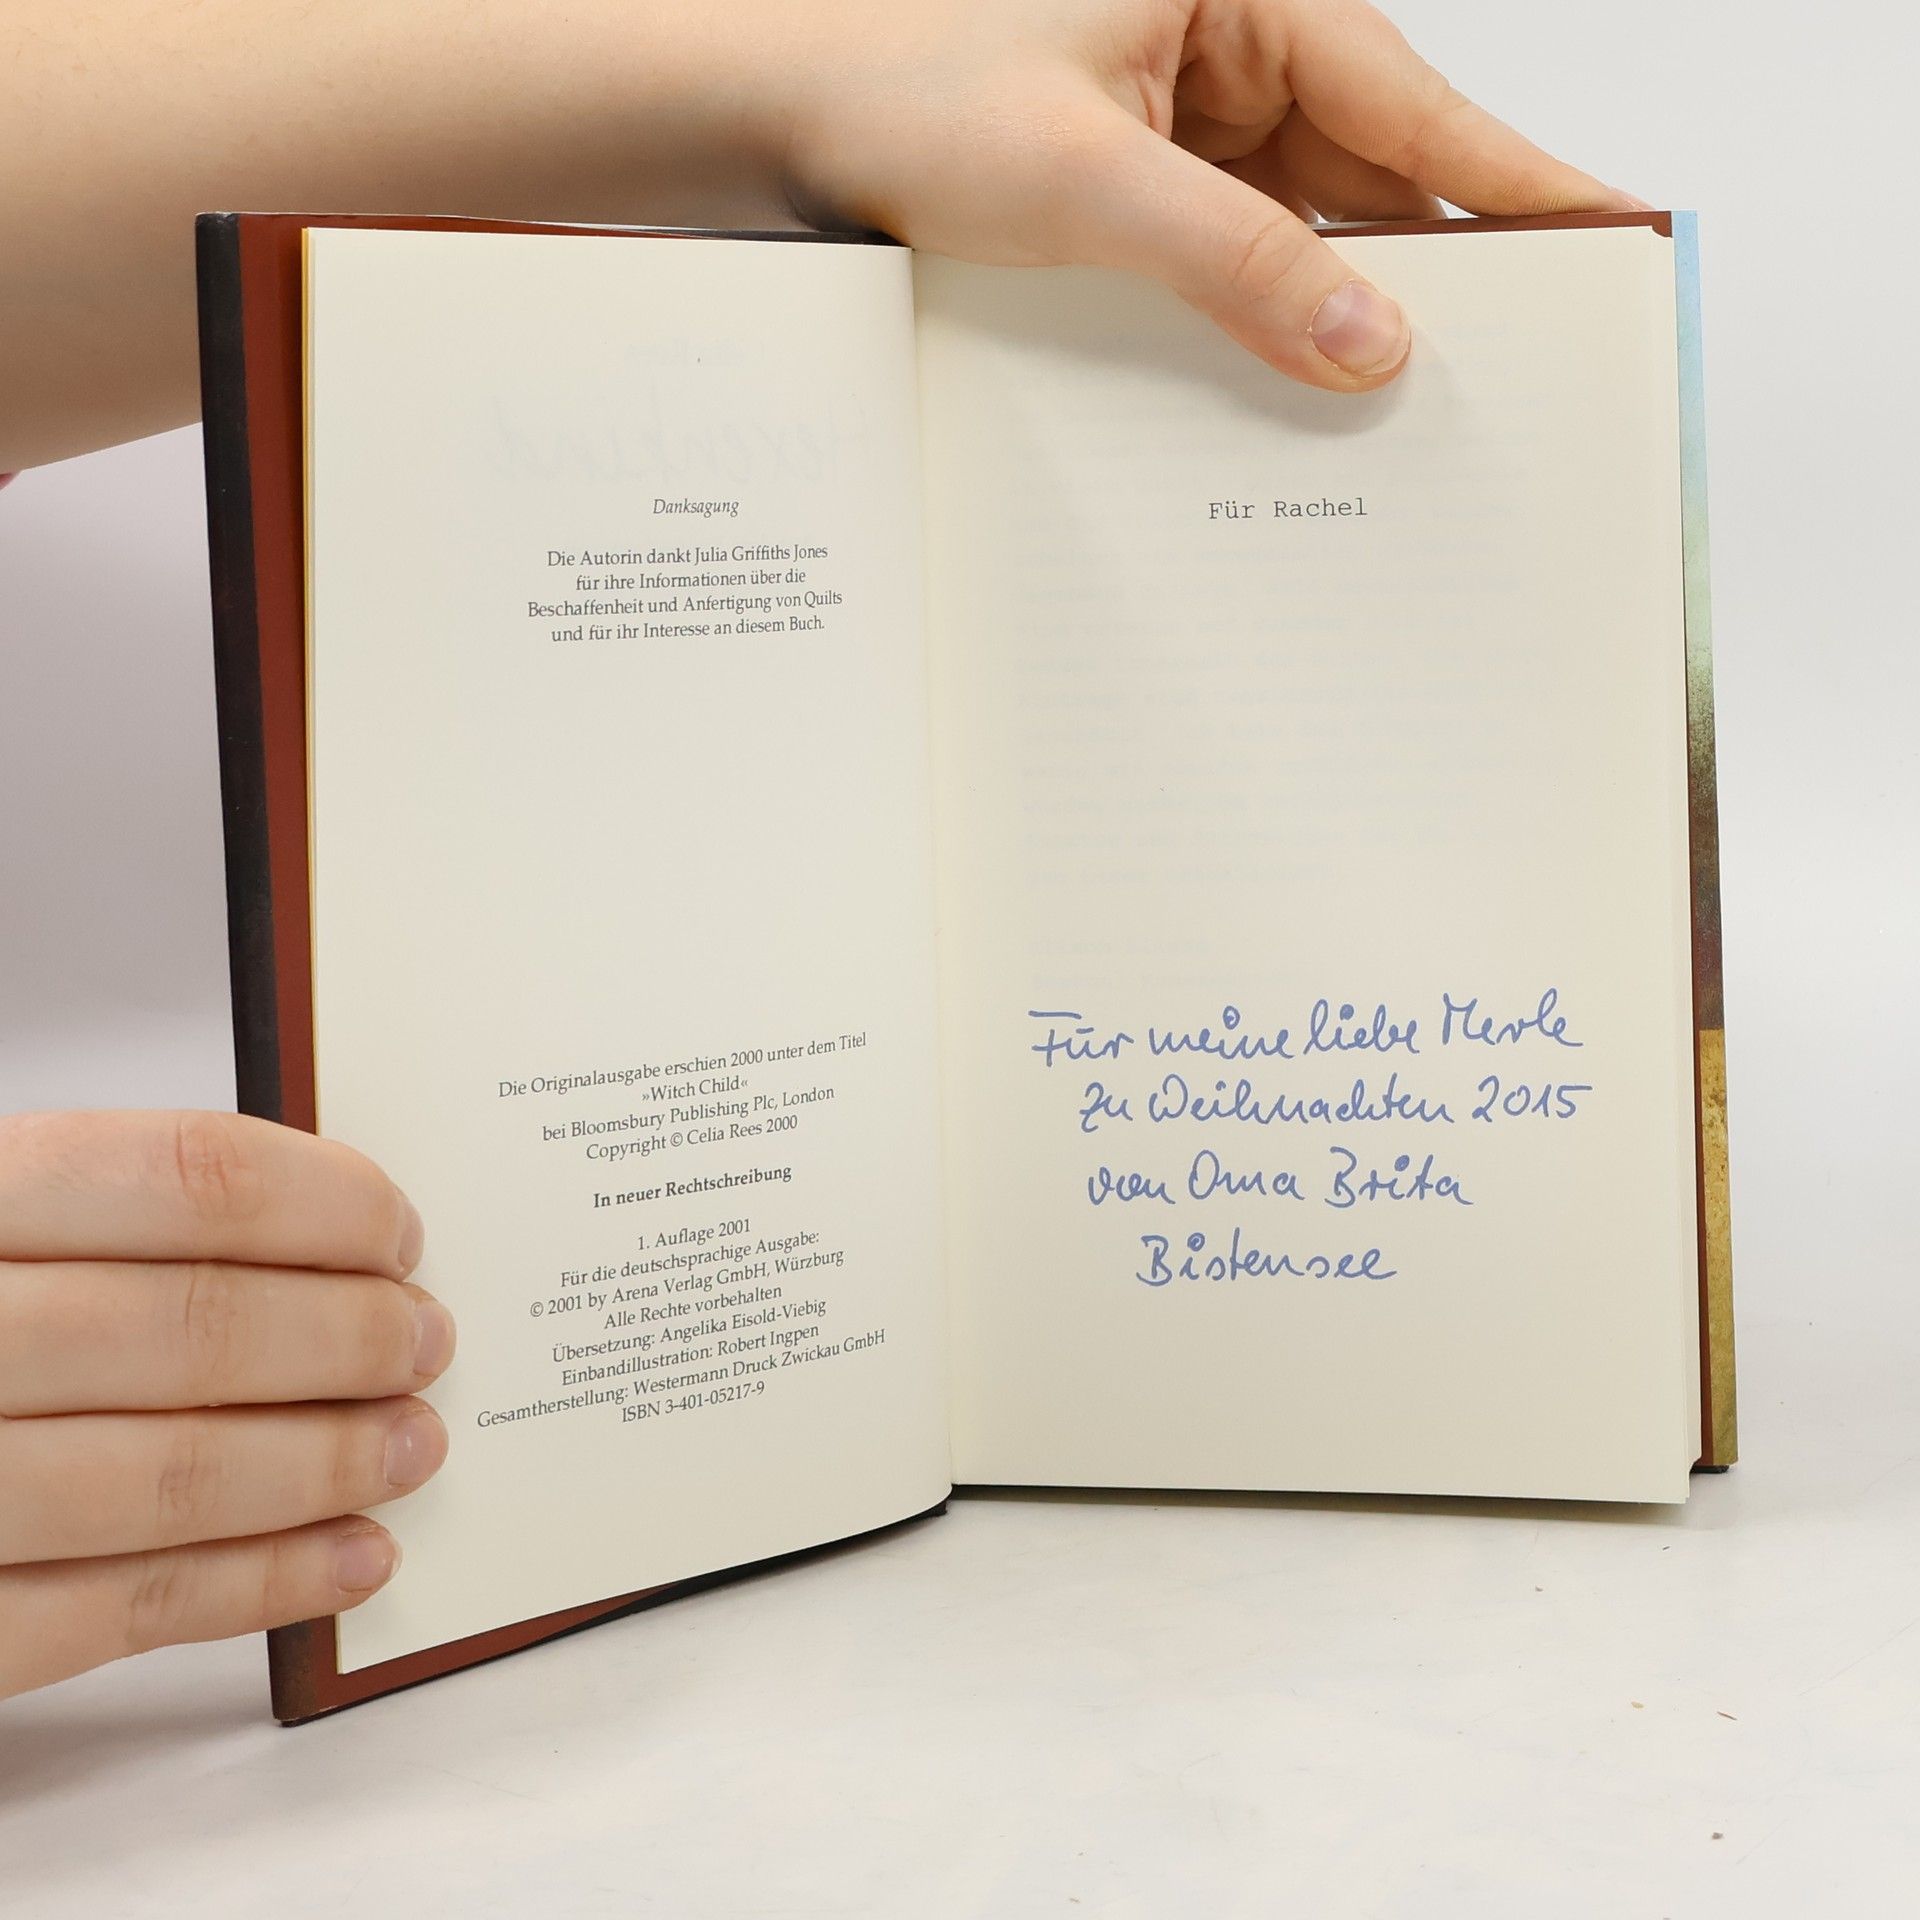 Danksagung
Die Autorin dankt Julia Griffiths Jones
für ihre Informationen über die
Beschaffenheit und Anfertigung von Quilts
und für ihr Interesse an diesem Buch.
Die Originalausgabe erschien 2000 unter dem Titel
»Witch Child«
bei Bloomsbury Publishing Plc, London
Copyright © Celia Rees 2000
In neuer Rechtschreibung
1. Auflage 2001
Für die deutschsprachige Ausgabe:
© 2001 by Arena Verlag GmbH, Würzburg
Alle Rechte vorbehalten
Übersetzung: Angelika Eisold-Viebig
Einbandillustration: Robert Ingpen
Gesamtherstellung: Westermann Druck Zwickau GmbH
ISBN 3-401-05217-9
Für Rachel
Für meine liebe Merle
zu Weihnachten 2015
von Oma Brita
Bistensee